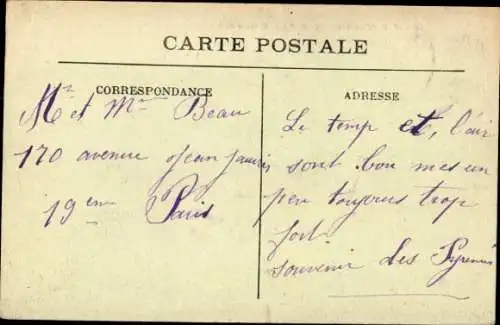 CARTE POSTALE
CORRESPONDANCE
Mr et Mme Beau
170 avenue Jean Jaurès
19eme Paris
ADRESSE
Le temp et, l'air
sont bon mes un
peu toujours trop
fort.
souvenir des Pyrenées